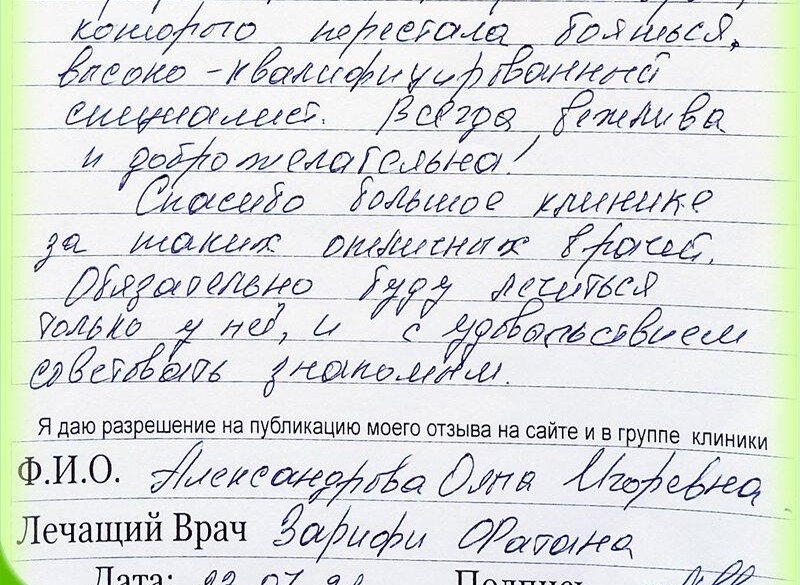 которого перестала бояться,
высоко-квалифицированный
специалист. Всегда вежлива
и доброжелательна!
Спасибо большое клинике
за таких отличных врачей.
Обязательно буду лечиться
только у неё, и с удовольствием
советовать знакомым.
Я даю разрешение на публикацию моего отзыва на сайте и в группе клиники
Ф.И.О. Александрова Игоревна
Лечащий Врач Зарифи
Дата: Подпись